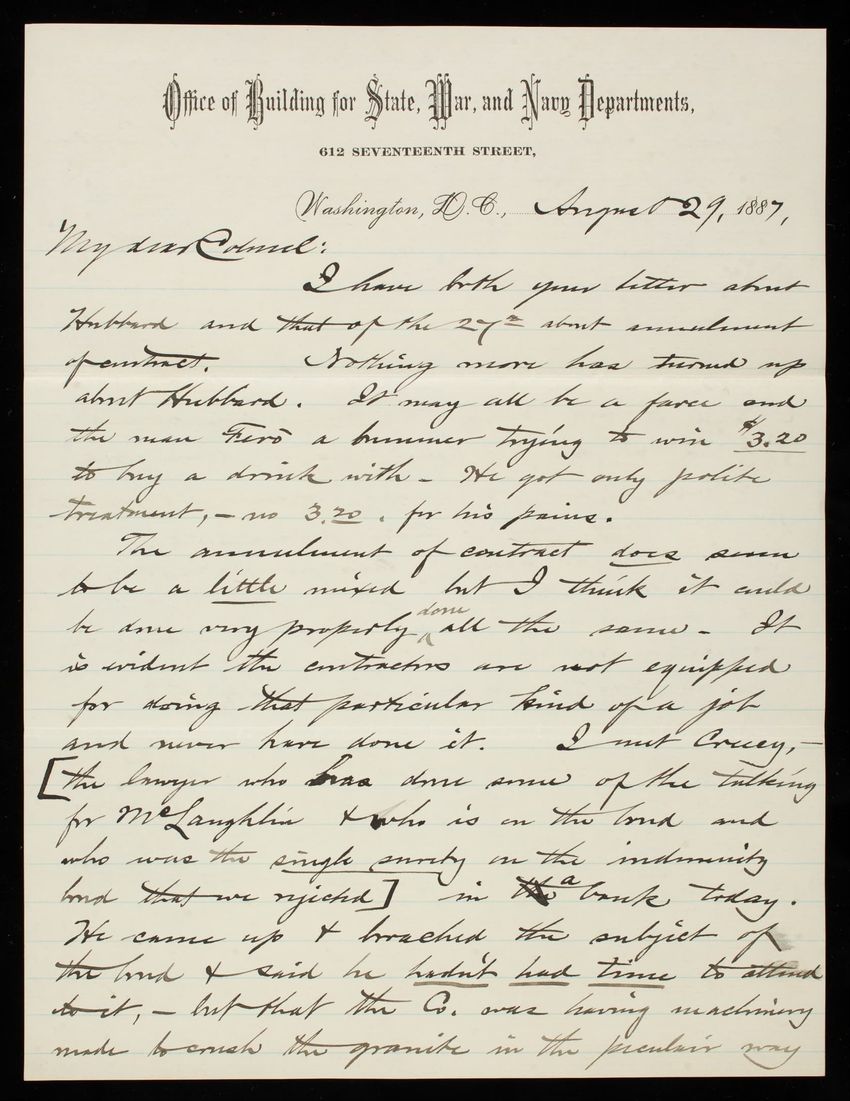 Office of Building for State, War, and Navy Departments,
612 SEVENTEENTH STREET,
Washington, D.C., August 29, 1887,
My dear Colonel:
I have both your letter about
Hubbard and that of the 27th about annulment
of contract. Nothing more has turned up
about Hubbard. It may all be a farce and
the man a bummer trying to win $3.20
to buy a drink with - He got only polite
treatment, - no 3.20. for his pains.
The annulment of contract does seem
to be a little mixed but I think it could
be done very properly done all the same - It
is evident the contractors are not equipped
for doing that particular kind of a job
and never have done it. I met Creecy, -
[the lawyer who has done some of the talking
for McLaughlin & who is on the bond and
who was the single surety on the indemnity
bond that we rejected] in a bank today.
He came up & broached the subject of
the bond & said he hadn't had time to attend
to it, - but that the Co. was having machinery
made to crush the granite in the peculair way